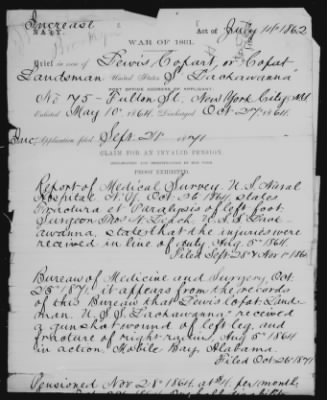 Increase
NAVY.
Act of July 14th 1862
WAR OF 1861.
Brief in case of Lewis Copart, or Copat
Landsman United States S "Lackawanna"
POST OFFICE ADDRESS OF APPLICANT:
No 75 - Fulton St, New York City, N.Y.
Enlisted May 10th 1864 Discharged Oct 27th 1864
Inc. Application filed Sept. 28 1871
CLAIM FOR AN INVALID PENSION.
PROOF EXHIBITED.
Report of Medical Survey U. S. Naval
Hospital N. Y. Oct 26 1864 states
Fractura & Paralysis of left foot
Surgeon Thos H. Leach U. S. S. Lack-
awanna, states that the injuries were
received in line of duty Aug 5th 1864
Filed Sept. 28th & Nov 1st
Bureau of Medicine and Surgery Oct.
25th 1871, it appears from the records
of this Bureau that Lewis Copat Lands-
man. U. S. S. "Lackawanna" received
a gunshot wound of left leg, and
fracture of right arm, Aug 5th 1864
in action, Mobile Bay, Alabama.
Filed Oct 26 1871
Pensioned Nov 28th 1864 at $4. per month